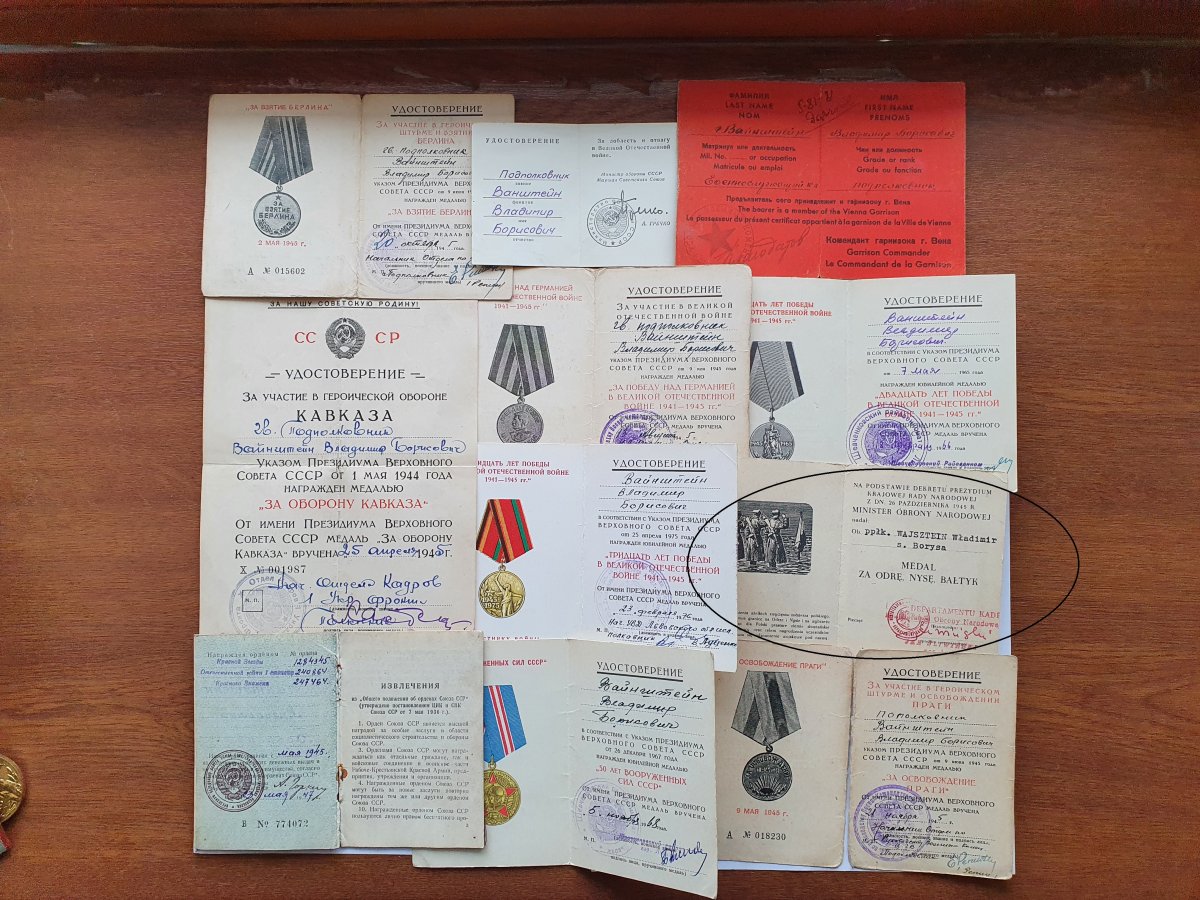 "ЗА ВЗЯТИЕ БЕРЛИНА"
ЗА
ВЗЯТИЕ
БЕРЛИНА
2 МАЯ 1945 г.
А № 015602
УДОСТОВЕРЕНИЕ
ЗА УЧАСТИЕ В ГЕРОИЧ
ШТУРМЕ И ВЗЯТИ
БЕРЛИНА
гв. подполковник
Вайнштейн
Владимир Борисо
УКАЗОМ ПРЕЗИДИУМА ВЕРХО
СОВЕТА СССР от 9 июня 1945
НАГРАЖДЕН МЕДАЛЬЮ
"ЗА ВЗЯТИЕ БЕРЛИН
От имени ПРЕЗИДИУМА ВЕРХОВ
СОВЕТА СССР МЕДАЛЬ ВРУЧЕ
20 октября
УДОСТОВЕРЕНИЕ
Подполковник
звание
Ванштейн
фамилия
Владимир
имя
Борисович
отчество
За доблесть и отвагу
в Великой Отечественной
войне.
Министр обороны СССР
Маршал Советского Союза
А. ГРЕЧКО
ФАМИЛИЯ
LAST NAME
NOM
Вайнштейн
Матрикул или деятельность
Mil. No. or occupation
Matricule ou emploi
Военнослужащий
ИМЯ
FIRST NAME
PRENOMS
Владимир Борисович
Чин или должность
Grade or rank
Grade ou fonction
подполковник
Предъявитель сего принадлежит к гарнизону г. Вена
The bearer is a member of the Vienna Garrison
Le possesseur du présent certificat appartient à la garnison de la Ville de Vienne
Комендант гарнизона г. Вена
Garrison Commander
Le Commandant de la Garnison
ЗА НАШУ СОВЕТСКУЮ РОДИНУ!
СС СР
УДОСТОВЕРЕНИЕ
ЗА УЧАСТИЕ В ГЕРОИЧЕСКОЙ ОБОРОНЕ
КАВКАЗА
гв. Подполковник
Вайнштейн Владимир Борисович
УКАЗОМ ПРЕЗИДИУМА ВЕРХОВНОГО
СОВЕТА СССР ОТ 1 МАЯ 1944 ГОДА
НАГРАЖДЕН МЕДАЛЬЮ
"ЗА ОБОРОНУ КАВКАЗА"
ОТ ИМЕНИ ПРЕЗИДИУМА ВЕРХОВНОГО
СОВЕТА СССР МЕДАЛЬ „ЗА ОБОРОНУ
КАВКАЗА" ВРУЧЕНА 25 апреля 1945 г.
Х № 001987
М. П.
Нач. Отдела Кадров
1 Укр. фронта
НАД ГЕРМАНИЕЙ
ЕЧЕСТВЕННОЙ ВОЙНЕ
1941—1945 гг."
УДОСТОВЕРЕНИЕ
ЗА УЧАСТИЕ В ВЕЛИКОЙ
ОТЕЧЕСТВЕННОЙ ВОЙНЕ
гв. подполковник
Вайнштейн
Владимир Борисович
УКАЗОМ ПРЕЗИДИУМА ВЕРХОВНОГО
СОВЕТА СССР от 9 мая 1945 года
НАГРАЖДЕН МЕДАЛЬЮ
"ЗА ПОБЕДУ НАД ГЕРМАНИЕЙ
В ВЕЛИКОЙ ОТЕЧЕСТВЕННОЙ
ВОЙНЕ 1941—1945 гг."
ДЦАТЬ ЛЕТ ПОБЕДЫ
ОТЕЧЕСТВЕННОЙ ВОЙНЕ
1941—1945 гг."
УДОСТОВЕРЕНИЕ
Ванштейн
Владимир
Борисович
В СООТВЕТСТВИИ С УКАЗОМ ПРЕЗИДИУМА
ВЕРХОВНОГО СОВЕТА СССР
от 7 мая 1965 года
НАГРАЖДЕН ЮБИЛЕЙНОЙ МЕДАЛЬЮ
"ДВАДЦАТЬ ЛЕТ ПОБЕДЫ
В ВЕЛИКОЙ ОТЕЧЕСТВЕННОЙ
ВОЙНЕ 1941—1945 гг."
ИДЦАТЬ ЛЕТ ПОБЕДЫ
ОТЕЧЕСТВЕННОЙ ВОЙНЕ
1941—1945 гг."
УДОСТОВЕРЕНИЕ
Вайнштейн
Владимир
Борисович
В СООТВЕТСТВИИ С УКАЗОМ ПРЕЗИДИУМА
ВЕРХОВНОГО СОВЕТА СССР
от 25 апреля 1975 года
НАГРАЖДЕН ЮБИЛЕЙНОЙ МЕДАЛЬЮ
"ТРИДЦАТЬ ЛЕТ ПОБЕДЫ
В ВЕЛИКОЙ ОТЕЧЕСТВЕННОЙ
ВОЙНЕ 1941—1945 гг."
От имени ПРЕЗИДИУМА ВЕРХОВНОГО
СОВЕТА СССР МЕДАЛЬ ВРУЧЕНА
23 февраля 1976 г.
NA PODSTAWIE DEKRETU PREZYDIUM
KRAJOWEJ RADY NARODOWEJ
Z DN. 26 PAŹDZIERNIKA 1945 R
MINISTER OBRONY NARODOWEJ
nadał
Ob. ppłk. WAJSZTEIN Władimir
s. Borysa
MEDAL
ZA ODRĘ, NYSĘ, BAŁTYK
Pieczęć
DEPARTAMENTU KADR
Награжден орденом № ордена
Красной Звезды 1284345
Отечественной войны I степени 240864
Красного Знамени 247464
мая 1945.
Б № 774072
ИЗВЛЕЧЕНИЯ
из „Общего положения об орденах Союза ССР"
(утверждено постановлением ЦИК и СНК
Союза ССР от 7 мая 1936 г.)
1. Орден Союза ССР является высшей
наградой за особые заслуги в области
социалистического строительства и обороны
Союза ССР.
3. Орденами Союза ССР могут награ-
ждаться как отдельные граждане, так и
войсковые соединения и воинские части
Рабоче-Крестьянской Красной Армии, предпри-
ятия, учреждения и организации.
4. Награжденные орденом Союза ССР
могут быть за новые заслуги повторно
награждены тем же или другим орденом
Союза ССР.
10. Награжденные орденом Союза ССР
пользуются лично правом бесплатного про-
ЖЕННЫХ СИЛ СССР"
УДОСТОВЕРЕНИЕ
Вайнштейн
Владимир
Борисович
В СООТВЕТСТВИИ С УКАЗОМ ПРЕЗИДИУМА
ВЕРХОВНОГО СОВЕТА СССР
от 26 декабря 1967 года
НАГРАЖДЕН ЮБИЛЕЙНОЙ МЕДАЛЬЮ
"50 ЛЕТ ВООРУЖЕННЫХ
СИЛ СССР"
От имени ПРЕЗИДИУМА ВЕРХОВНОГО
СОВЕТА СССР МЕДАЛЬ ВРУЧЕНА
5. ноября 1968 г.
М. П.
ОСВОБОЖДЕНИЕ ПРАГИ"
9 МАЯ 1945 г.
А № 018230
УДОСТОВЕРЕНИЕ
ЗА УЧАСТИЕ В ГЕРОИЧЕСКОМ
ШТУРМЕ И ОСВОБОЖДЕНИИ
ПРАГИ
Пополковник
Вайнштейн
Владимир Борисович
УКАЗОМ ПРЕЗИДИУМА ВЕРХОВНОГО
СОВЕТА СССР от 9 июня 1945 года
НАГРАЖДЕН МЕДАЛЬЮ
"ЗА ОСВОБОЖДЕНИЕ
ПРАГИ"
От имени ПРЕЗИДИУМА ВЕРХОВНОГО
СОВЕТА СССР МЕДАЛЬ ВРУЧЕНА
ноября 1945 г.